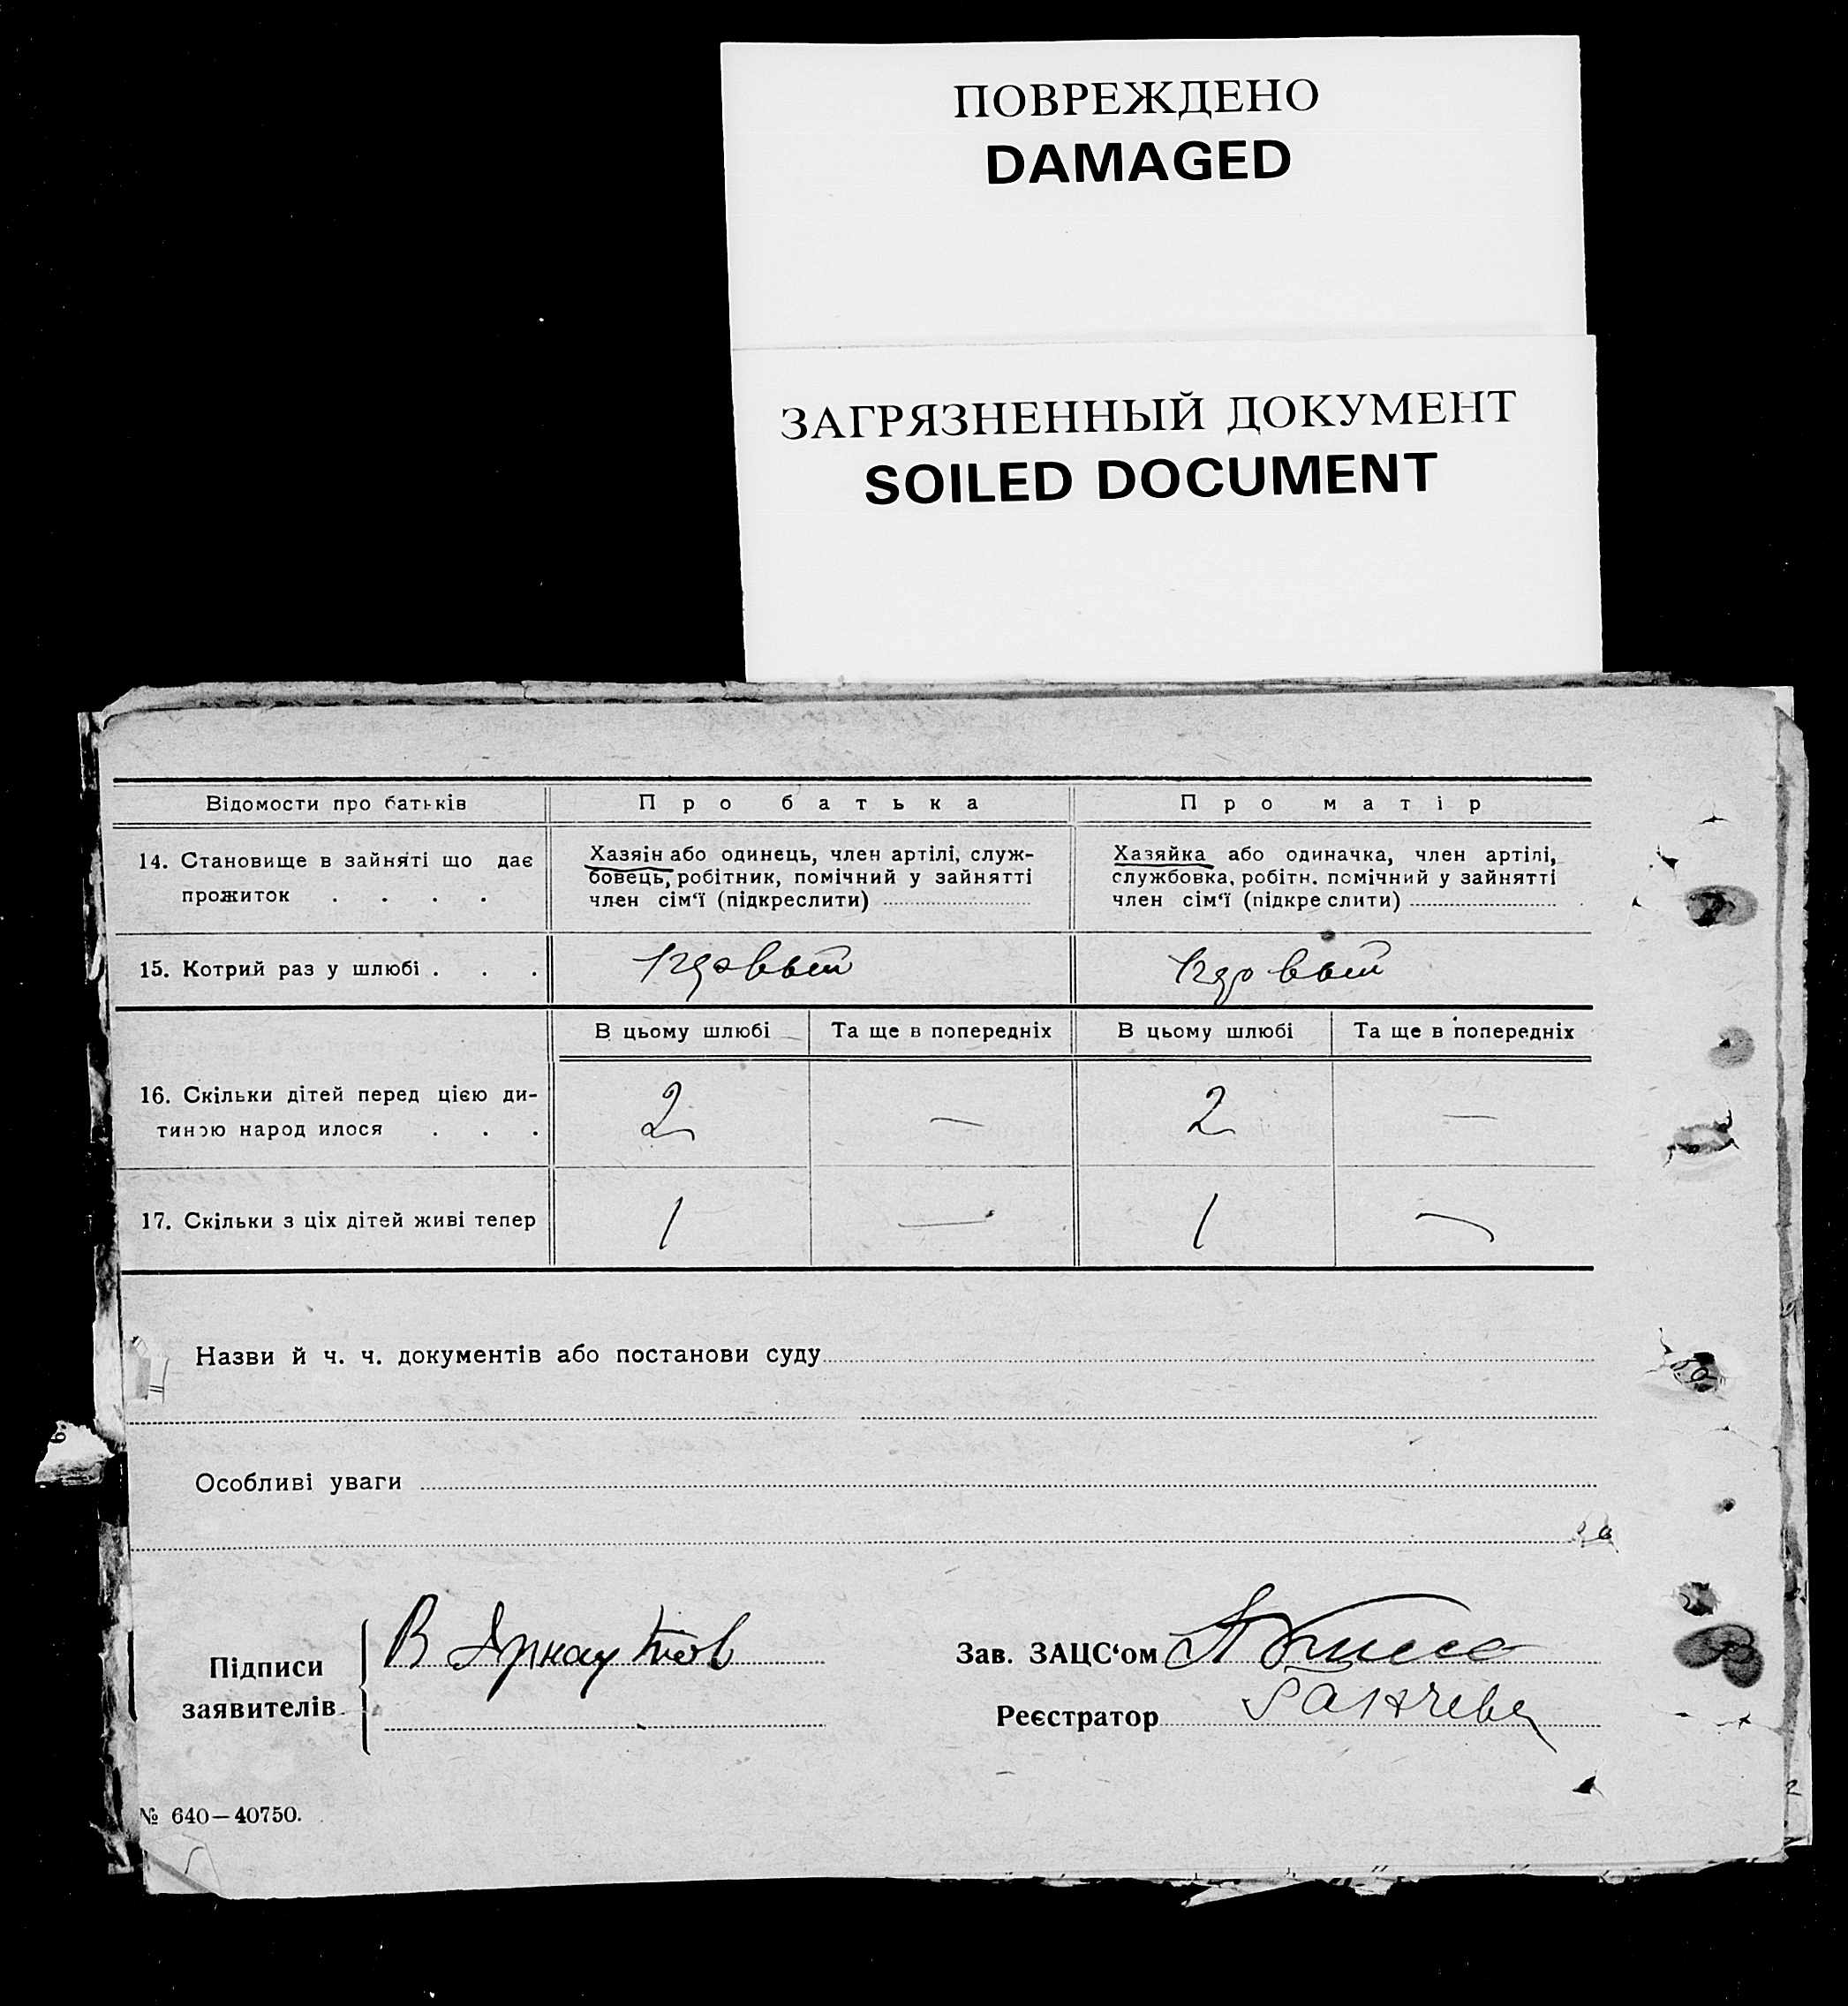 ПОВРЕЖДЕНО
DAMAGED
ЗАГРЯЗНЕННЫЙ ДОКУМЕНТ
SOILED DOCUMENT
Відомости про батьків
Про батька
Про матір
14. Становище в зайняті що дає
прожиток . . . .
Хазяїн або одинець, член артілі, служ-
бовець, робітник, помічний у зайнятті
член сім'ї (підкреслити)
Хазяйка або одиначка, член артілі,
службовка, робітн. помічний у зайнятті
член сім'ї (підкреслити)
15. Котрий раз у шлюбі . . .
В цьому шлюбі
Та ще в попередніх
В цьому шлюбі
Та ще в попередніх
16. Скільки дітей перед цією ди-
тиною народилося . . .
2
—
2
—
17. Скільки з ціх дітей живі тепер
1
—
1
—
Назви й ч. ч. документів або постанови суду
Особливі уваги
Підписи
заявителів
В Арнаутов
Зав. ЗАЦС'ом
Реєстратор
№ 640—40750.